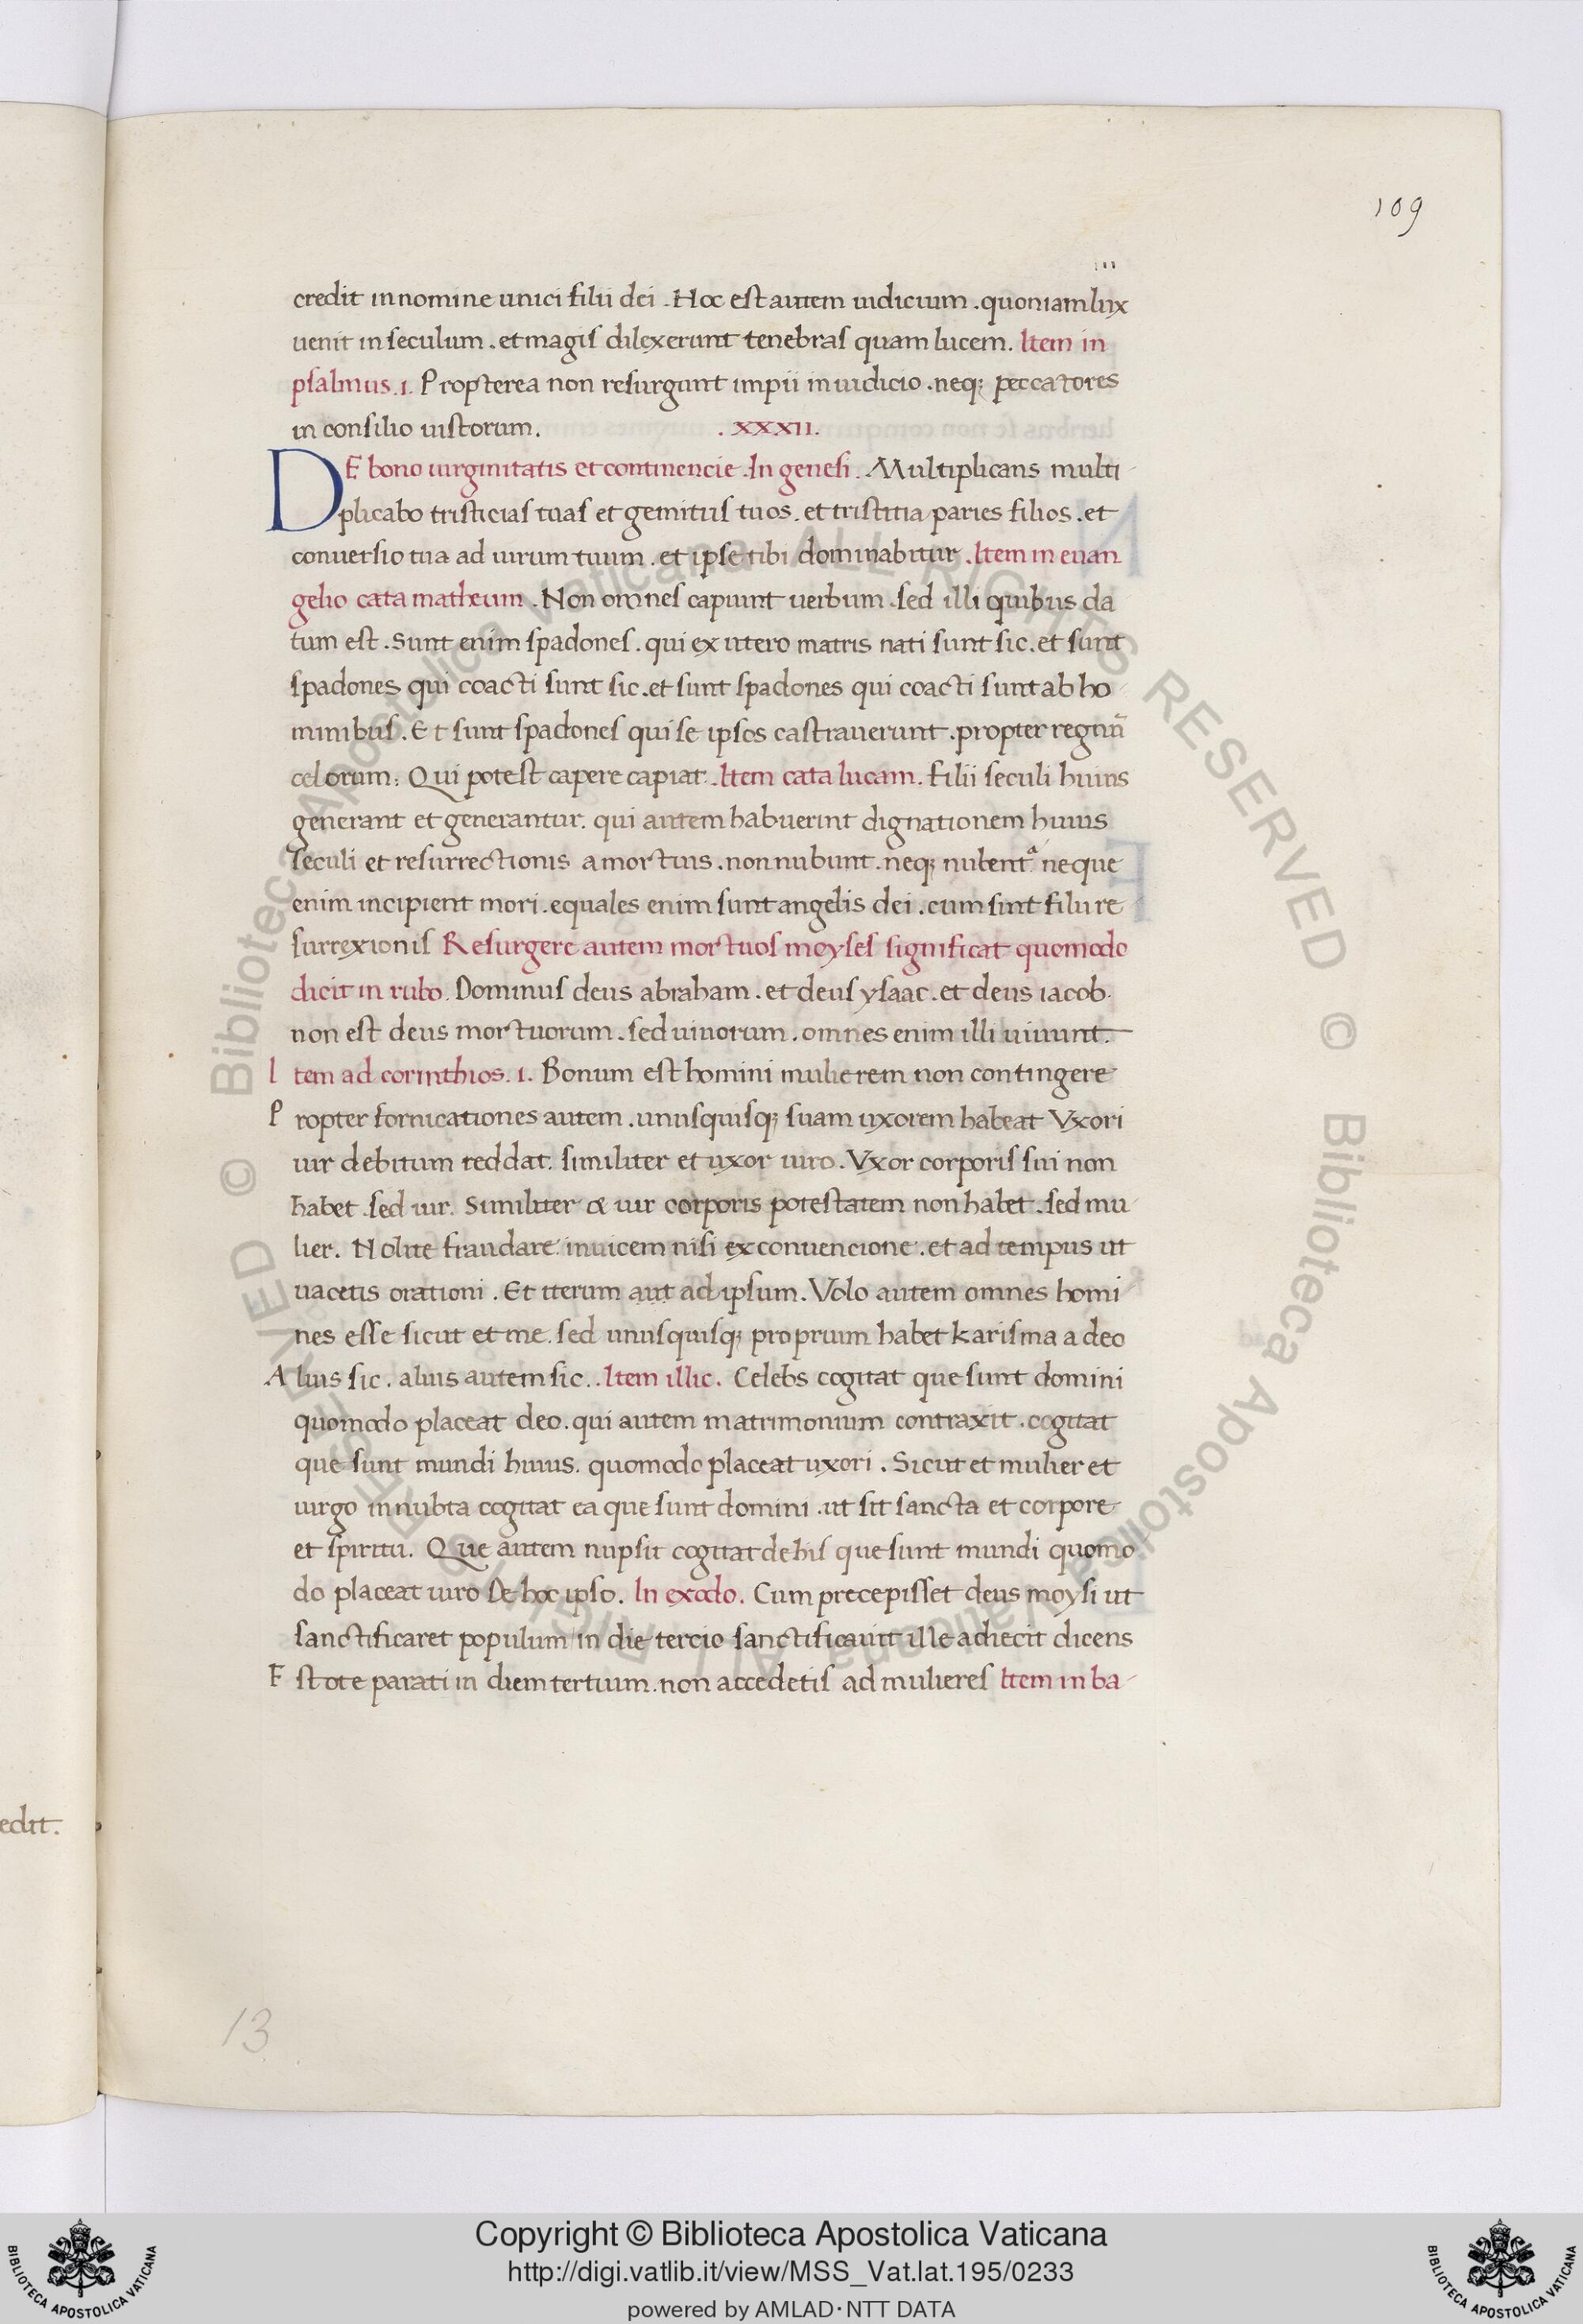 109
credit in nomine unici filii dei . Hoc est autem iudicium . quoniam lux
uenit in seculum . et magis dilexerunt tenebras quam lucem . Item in
psalmus .1. Propterea non resurgunt impii in iudicio . neq; peccatores
in consilio iustorum . . XXXII .
DE bono uirginitatis et continencie . In genesi . Multiplicans multi
plicabo tristicias tuas et gemitus tuos . et tristitia paries filios . et
conuersio tua ad uirum tuum . et ipse tibi dominabitur . Item in euan
gelio cata matheum . Non omnes capiunt uerbum . sed illi quibus da
tum est . Sunt enim spadones . qui ex utero matris nati sunt sic . et sunt
spadones qui coacti sunt sic . et sunt spadones qui coacti sunt ab ho
minibus . Et sunt spadones qui se ipsos castrauerunt . propter regnū
celorum : Qui potest capere capiat . Item cata lucam . Filii seculi huius
generant et generantur . qui autem habuerint dignationem huius
seculi et resurrectionis a mortuis . non nubunt . neq; nubent neque
enim incipient mori . equales enim sunt angelis dei . cum sint filii re
surrexionis Resurgere autem mortuos moyses significat quomodo
dicit in rubo . Dominus deus abraham . et deus ysaac . et deus iacob .
non est deus mortuorum . sed uiuorum . omnes enim illi uiuunt .
Item ad corinthios .1. Bonum est homini mulierem non contingere
Propter fornicationes autem . unusquisq; suam uxorem habeat Vxori
uir debitum reddat . similiter et uxor uiro . Vxor corporis sui non
habet . sed uir . Similiter & uir corporis potestatem non habet . sed mu
lier . Nolite fraudare inuicem nisi ex conuencione . et ad tempus ut
uacetis orationi . Et iterum aut ad ipsum . Volo autem omnes homi
nes esse sicut et me . sed unusquisq; proprium habet karisma a deo
Alius sic . alius autem sic . . Item illic . Celebs cogitat que sunt domini
quomodo placeat deo . qui autem matrimonium contraxit . cogitat
que sunt mundi huius . quomodo placeat uxori . Sicut et mulier et
uirgo innubta cogitat ea que sunt domini . ut sit sancta et corpore
et spiritu . Que autem nupsit cogitat de his que sunt mundi quomo
do placeat uiro De hoc ipso . In exodo . Cum precepisset deus moysi ut
sanctificaret populum in die tercio sanctificauit ille adiecit dicens
Estote parati in diem tertium . non accedetis ad mulieres Item in ba
edit .
13
© Biblioteca Apostolica Vaticana ALL RIGHTS RESERVED © Biblioteca Apostolica Vaticana ALL RIGHTS RESERVED
Copyright © Biblioteca Apostolica Vaticana
http://digi.vatlib.it/view/MSS_Vat.lat.195/0233
powered by AMLAD·NTT DATA
BIBLIOTECA APOSTOLICA VATICANA
BIBLIOTECA APOSTOLICA VATICANA